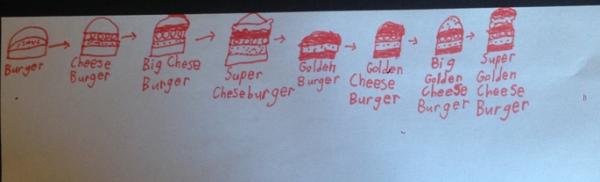 Burger
Cheese
Burger
Big Chese
Burger
Super
Cheseburger
Golden
Burger
Golden
Cheese
Burger
Big
Golden
Cheese
Burger
Super
Golden
Cheese
Burger